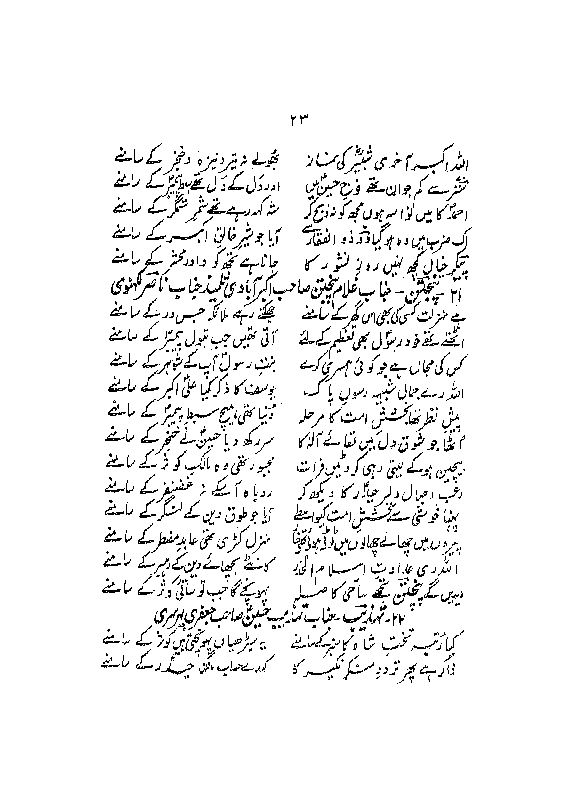 ۲۳
اللہ اکبر آخری شبیر کی نماز بھولے نہ تیر و نیزہ و خنجر کے سامنے
بہتر سے کم جوان تھے فوج حسین میں اور دَل کے دَل تھے سبط پیمبر کے سامنے
احمد کا میں نواسہ ہوں مجھ کو نہ ذبح کر شہ کہہ رہے تھے شمر ستمگر کے سامنے
اک ضرب میں دو ہو گیا ذوالفقار سے آیا جو شیر خالق اکبر کے سامنے
پیکر خیال کچھ نہیں روز نشور کا جانا ہے تجھ کو داور محشر کے سامنے
۲۱ - پنجتن - جناب غلام پنجتن صاحب اکبر آبادی تلمیذ جناب ناصر
ہے منزلت کسی کی بھی اس گھر کے سامنے جھکتے رہے ملائکہ جس در کے سامنے
اٹھتے تھے خود رسول بھی تعظیم کے لئے آتی تھیں جب بتول پیمبر کے سامنے
کس کی مجال ہے جو کوئی ہمسری کرے بنت رسول آپ کے شوہر کے سامنے
اللہ رے جمال شبیہ رسول پاک یوسف کا ذکر کیا علی اکبر کے سامنے
پیش نظر تھا بخشش امت کا مرحلہ دنیا تھی ہیچ سبط پیمبر کے سامنے
اٹھا جو شوق دل میں لقائے الٰہ کا سر رکھ دیا حسین نے خنجر کے سامنے
بیچین ہو کے پیتی رہی کروٹیں فرات مجبور تھی وہ مالک کوثر کے سامنے
رعب و جمال دلبر حیدر کا دیکھ کر روباہ آ سکے نہ غضنفر کے سامنے
پہنا خوشی سے بخشش امت کیواسطے آیا جو طوق دین کے لنگر کے سامنے
پیروں میں چھالے چھالوں میں منزل کڑی تھی عابد مضطر کے سامنے
اللہ ری عداوت اسلام الحذر کانٹے بچھائے دین کے رہبر کے سامنے
دیں گے پنجتن تجھے مداحی کا صلہ پہونچے گا جب تو ساقی کوثر کے سامنے
۲۲ - تہذیب - جناب تہذیب حسنین صاحب جعفری
کیا رتبہ تخت شاہ کا منبر کے سامنے یہ سیڑھیاں پہونچتی ہیں کوثر کے سامنے
ذاکر ہے پھر تردد منکر نکیر کا